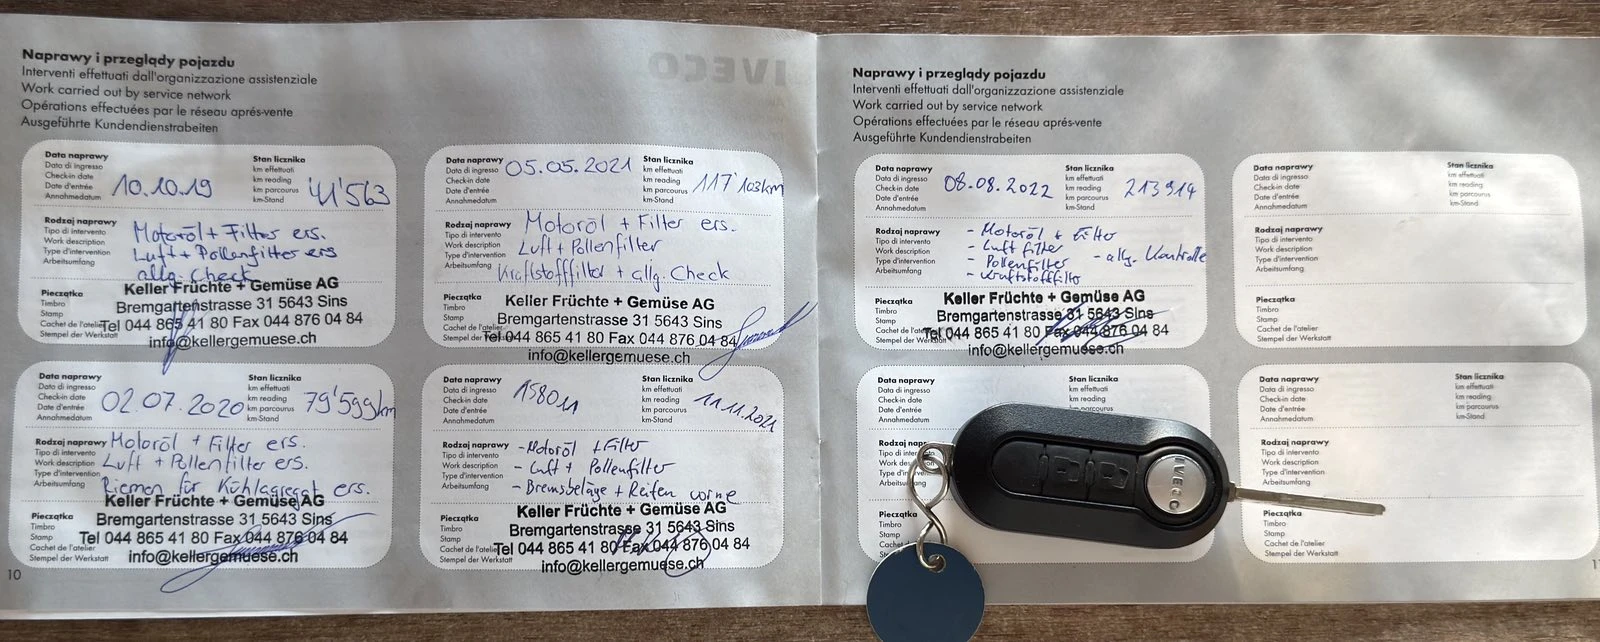 Naprawy i przeglądy pojazdu
Interventi effettuati dall'organizzazione assistenziale
Work carried out by service network
Opérations effectuées par le réseau aprés-vente
Ausgeführte Kundendienstrabeiten
IVECO
Data naprawy
Data di ingresso
Check-in date
Date d'entrée
Annahmedatum
10.10.19
Stan licznika
km effettuati
km reading
km parcourus
km-Stand
41'563
Rodzaj naprawy
Tipo di intervento
Work description
Type d'intervention
Arbeitsumfang
Motoröl + Filter ers.
Luft + Pollenfilter ers
allg. Check
Pieczątka
Timbro
Stamp
Cachet de l'atelier
Stempel der Werkstatt
Keller Früchte + Gemüse AG
Bremgartenstrasse 31 5643 Sins
Tel 044 865 41 80 Fax 044 876 04 84
info@kellergemuese.ch
Data naprawy
Data di ingresso
Check-in date
Date d'entrée
Annahmedatum
05.05.2021
Stan licznika
km effettuati
km reading
km parcourus
km-Stand
117'103km
Rodzaj naprawy
Tipo di intervento
Work description
Type d'intervention
Arbeitsumfang
Motoröl + Filter ers.
Luft + Pollenfilter
Kraftstofffilter + allg. Check
Pieczątka
Timbro
Stamp
Cachet de l'atelier
Stempel der Werkstatt
Keller Früchte + Gemüse AG
Bremgartenstrasse 31 5643 Sins
Tel 044 865 41 80 Fax 044 876 04 84
info@kellergemuese.ch
Data naprawy
Data di ingresso
Check-in date
Date d'entrée
Annahmedatum
02.07.2020
Stan licznika
km effettuati
km reading
km parcourus
km-Stand
79'599km
Rodzaj naprawy
Tipo di intervento
Work description
Type d'intervention
Arbeitsumfang
Motoröl + Filter ers.
Luft + Pollenfilter ers.
Riemen für Kühlagregat ers.
Pieczątka
Timbro
Stamp
Cachet de l'atelier
Stempel der Werkstatt
Keller Früchte + Gemüse AG
Bremgartenstrasse 31 5643 Sins
Tel 044 865 41 80 Fax 044 876 04 84
info@kellergemuese.ch
Data naprawy
Data di ingresso
Check-in date
Date d'entrée
Annahmedatum
158011
Stan licznika
km effettuati
km reading
km parcourus
km-Stand
11.11.2021
Rodzaj naprawy
Tipo di intervento
Work description
Type d'intervention
Arbeitsumfang
- Motoröl + Filter
- Luft + Pollenfilter
- Bremsbeläge + Reifen vorne
Pieczątka
Timbro
Stamp
Cachet de l'atelier
Stempel der Werkstatt
Keller Früchte + Gemüse AG
Bremgartenstrasse 31 5643 Sins
Tel 044 865 41 80 Fax 044 876 04 84
info@kellergemuese.ch
10
Naprawy i przeglądy pojazdu
Interventi effettuati dall'organizzazione assistenziale
Work carried out by service network
Opérations effectuées par le réseau aprés-vente
Ausgeführte Kundendienstrabeiten
Data naprawy
Data di ingresso
Check-in date
Date d'entrée
Annahmedatum
08.08.2022
Stan licznika
km effettuati
km reading
km parcourus
km-Stand
213914
Rodzaj naprawy
Tipo di intervento
Work description
Type d'intervention
Arbeitsumfang
- Motoröl + Filter
- Luft filter
- Pollenfilter - allg. Kontrolle
- Kraftstofffilter
Pieczątka
Timbro
Stamp
Cachet de l'atelier
Stempel der Werkstatt
Keller Früchte + Gemüse AG
Bremgartenstrasse 31 5643 Sins
Tel 044 865 41 80 Fax 044 876 04 84
info@kellergemuese.ch
Data naprawy
Data di ingresso
Check-in date
Date d'entrée
Annahmedatum
Stan licznika
km effettuati
km reading
km parcourus
km-Stand
Rodzaj naprawy
Tipo di intervento
Work description
Type d'intervention
Arbeitsumfang
Pieczątka
Timbro
Stamp
Cachet de l'atelier
Stempel der Werkstatt
Data naprawy
Data di ingresso
Check-in date
Date d'entrée
Annahmedatum
Stan licznika
km effettuati
km reading
km parcourus
Rodzaj
Tipo di
Work
Type d'
Arbeitsumfang
Pieczątka
Timbro
Stamp
Cachet
Stempel
IVECO
Data naprawy
Data di ingresso
Check-in date
Date d'entrée
Annahmedatum
Stan licznika
km effettuati
km reading
km parcourus
km-Stand
Rodzaj naprawy
Tipo di intervento
Work description
Type d'intervention
Arbeitsumfang
Pieczątka
Timbro
Stamp
Cachet de l'atelier
Stempel der Werkstatt